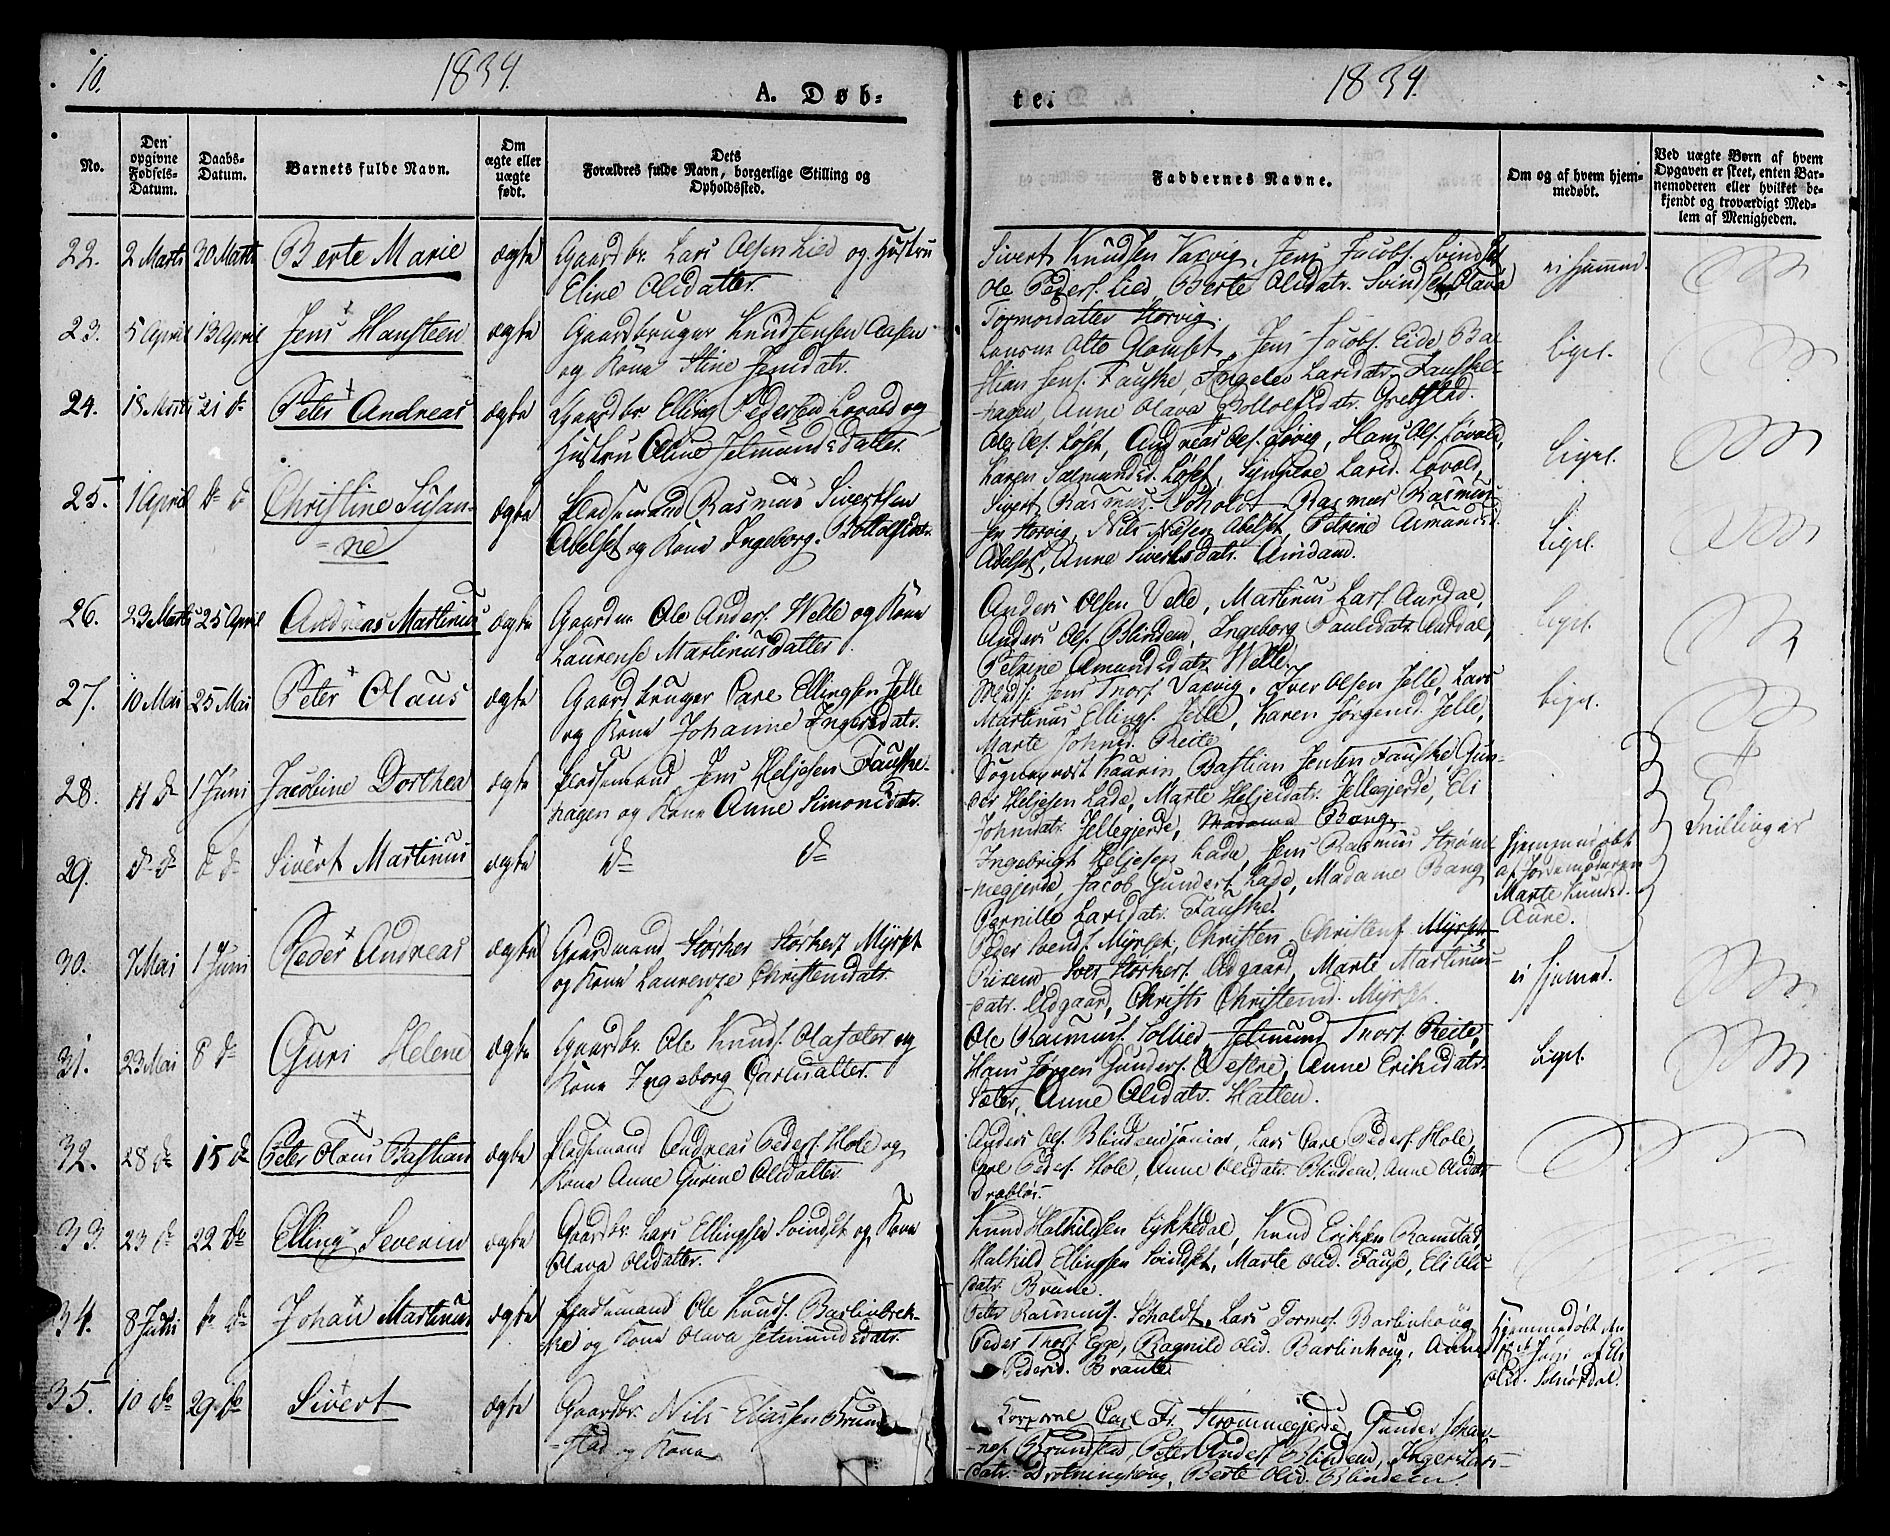 10.
1834.
A. Døb-
te.
1834.
No.
Den opgivne Fødsels-Datum.
Daabs-Datum.
Barnets fulde Navn.
Om ægte eller uægte født.
Dets Forældres fulde Navn, borgerlige Stilling og Opholdssted.
Faddernes Navne.
Om og af hvem hjemmedøbt.
Ved uægte Børn af hvem Opgaven er skeet, enten Barnemoderen eller hvilket bekjendt og troværdigt Medlem af Menigheden.
22. 2 Marts 20 Marts Berte Marie ægte Gaardbr. Lars Olsen Lied og Hustru
Eline Olsdatter.
Sivert Knudsen Vaxvig, Jens Jacobs. Svindset
Ole Peders. Lied Berte Olsdatr. Svindset, Olava
Tormodatter Storvig.
ei hjemmed.
23. 5 April 13 April Jens Hansteen ægte Gaardbruger Knud Jensen Aasen
og Kone Stine Jensdatr.
Glomset, Jens Jacobs. Eide Ba-
stian Jens. Fauske, Larsdatr. Fauske-
hagen Anne Olava Grebstad.
Ligel.
24. 18 Marts 21 d Peter Andreas ægte Gaardbr. Elling Pedersen Lovold og
Hustru Oline Jetmundsdatter.
Ole Ols. Løset, Andreas Ols. Løvig, Hans Ols. Lovold,
Karen Løset, Larsd. Lovold,
Ligel.
25. 1 April d d Christine Susan-
ne
ægte Pladsemand Rasmus Sivertsen
Abelset og Kone Ingeborg Bottolfsdatr.
Sivert Rasmus. Soholdt Rasmus Rasmus-
sen Storvig, Nils Nielsen Abelset, Petrine Asmundsd.
Abelset, Anne Sivertsdatr. Amdam.
Ligel.
26. 23 Marts 25 April Andreas Martinus ægte Gaardm. Ole Anders. Welle og Kone
Laurense Martinusdatter.
Anders Olsen Velle, Martinus Lars. Aurdal,
Anders Ols. Blindem, Ingeborg Paulsdatr. Aurdal,
Petrine Amundsdatr. Welle.
Ligel.
27. 10 Mai 25 Mai Peter Olaus ægte Gaardbruger Carl Ellingsen Jelle
og Kone Johanne Ingersdatr.
Jens Thors. Vaxvig, Iver Olsen Jelle, Lars
Martinus Ellings. Jelle, Karen Jørgensd. Jelle,
Marte Johnsd. Reite
Ligel.
28. 11 d 1 Juni Jacobine Dorthea ægte Pladsemand Jens Heljesen Fauske-
hagen og Kone Anne Simonsdatr.
Sognepræst Kaurin, Bastian Jensen Fauske Gun-
der Heljesen Lade, Marte Heljesdatr. Jellegjerde, Eli
Johnsdatr. Jellegjerde, Madame Bang
Tvillinger
29. d d d d Sivert Martinus ægte d d
Ingebrigt Heljesen Lade, Jens Rasmus Strøm-
megjerde, Jacob Gunders. Lade, Madame Bang
Pernille Larsdatr. Fauske.
Hjemmedøbt
af Jordemoderen
Marte Knudsd.
Aure.
30. 7 Mai 1 Juni Peder Andreas ægte Gaardmand Størker Størkers. Myrset
og Kone Laurentze Christensdatr.
Peder Svends. Myrset, Christen Christens. Myrset,
Størkers. Udgaard, Marte Martinus-
datr. Udgaard, Christi Christensd. Myrset.
ei hjemmed.
31. 23 Mai 8 d Guri Helene ægte Gaardbr. Ole Knuds. og
Kone Ingeborg Carlsdatter.
Ole Rasmus. Sollied, Jetmund Thors. Reite,
Hans Jørgen Gunders. Vestre, Anne Eriksdatr.
Sæter, Anne Olsdatr. Hatlen.
Ligel.
32. 28 d 15 d Peter Olaus Bastian ægte Pladsemand Andreas Peders. Hole og
Kone Anne Gurine Olsdatter.
Anders Ols. Blindem junior, Lars Carl Peders. Hole,
Carl Peders. Hole, Anne Olsdatr. Blindem, Anne Olsdatr.
Drabløs.
33. 23 d 22 d Elling Severin ægte Gaardbr. Lars Ellingsen Svindset og Kone
Olava Olsdatter.
Knud Halkildsen Lykkedal, Knud Eriksen Ramstad,
Halkild Ellingsen Svindset, Marte Olsd. Fauske, Eli Ols-
datr. Brune.
34. 8 Juni d d Johan Martinus ægte Pladsemand Ole Knuds. Barlinbrek-
ke og Kone Olava Jetmundsdatr.
Peter Rasmus. Soholdt, Lars Tormos. Barlinhoug,
Peder Thors. Ege, Ragnild Olsd. Barlinhoug, Anne
Pedersd. Braute
Hjemmedøbt den
Juni af Eli
Olsd.
35. 10 d 29 d Sivert ægte Gaardbr. Nils Eliessen Brun-
stad og Kone
Korporal Carl Fr. Strømmegjerde, Gunder Johan-
nes. Brunstad, Peter Anders. Blindem, Inger Lars-
datr. Drotninghoug, Berte Olsd. Blindem.